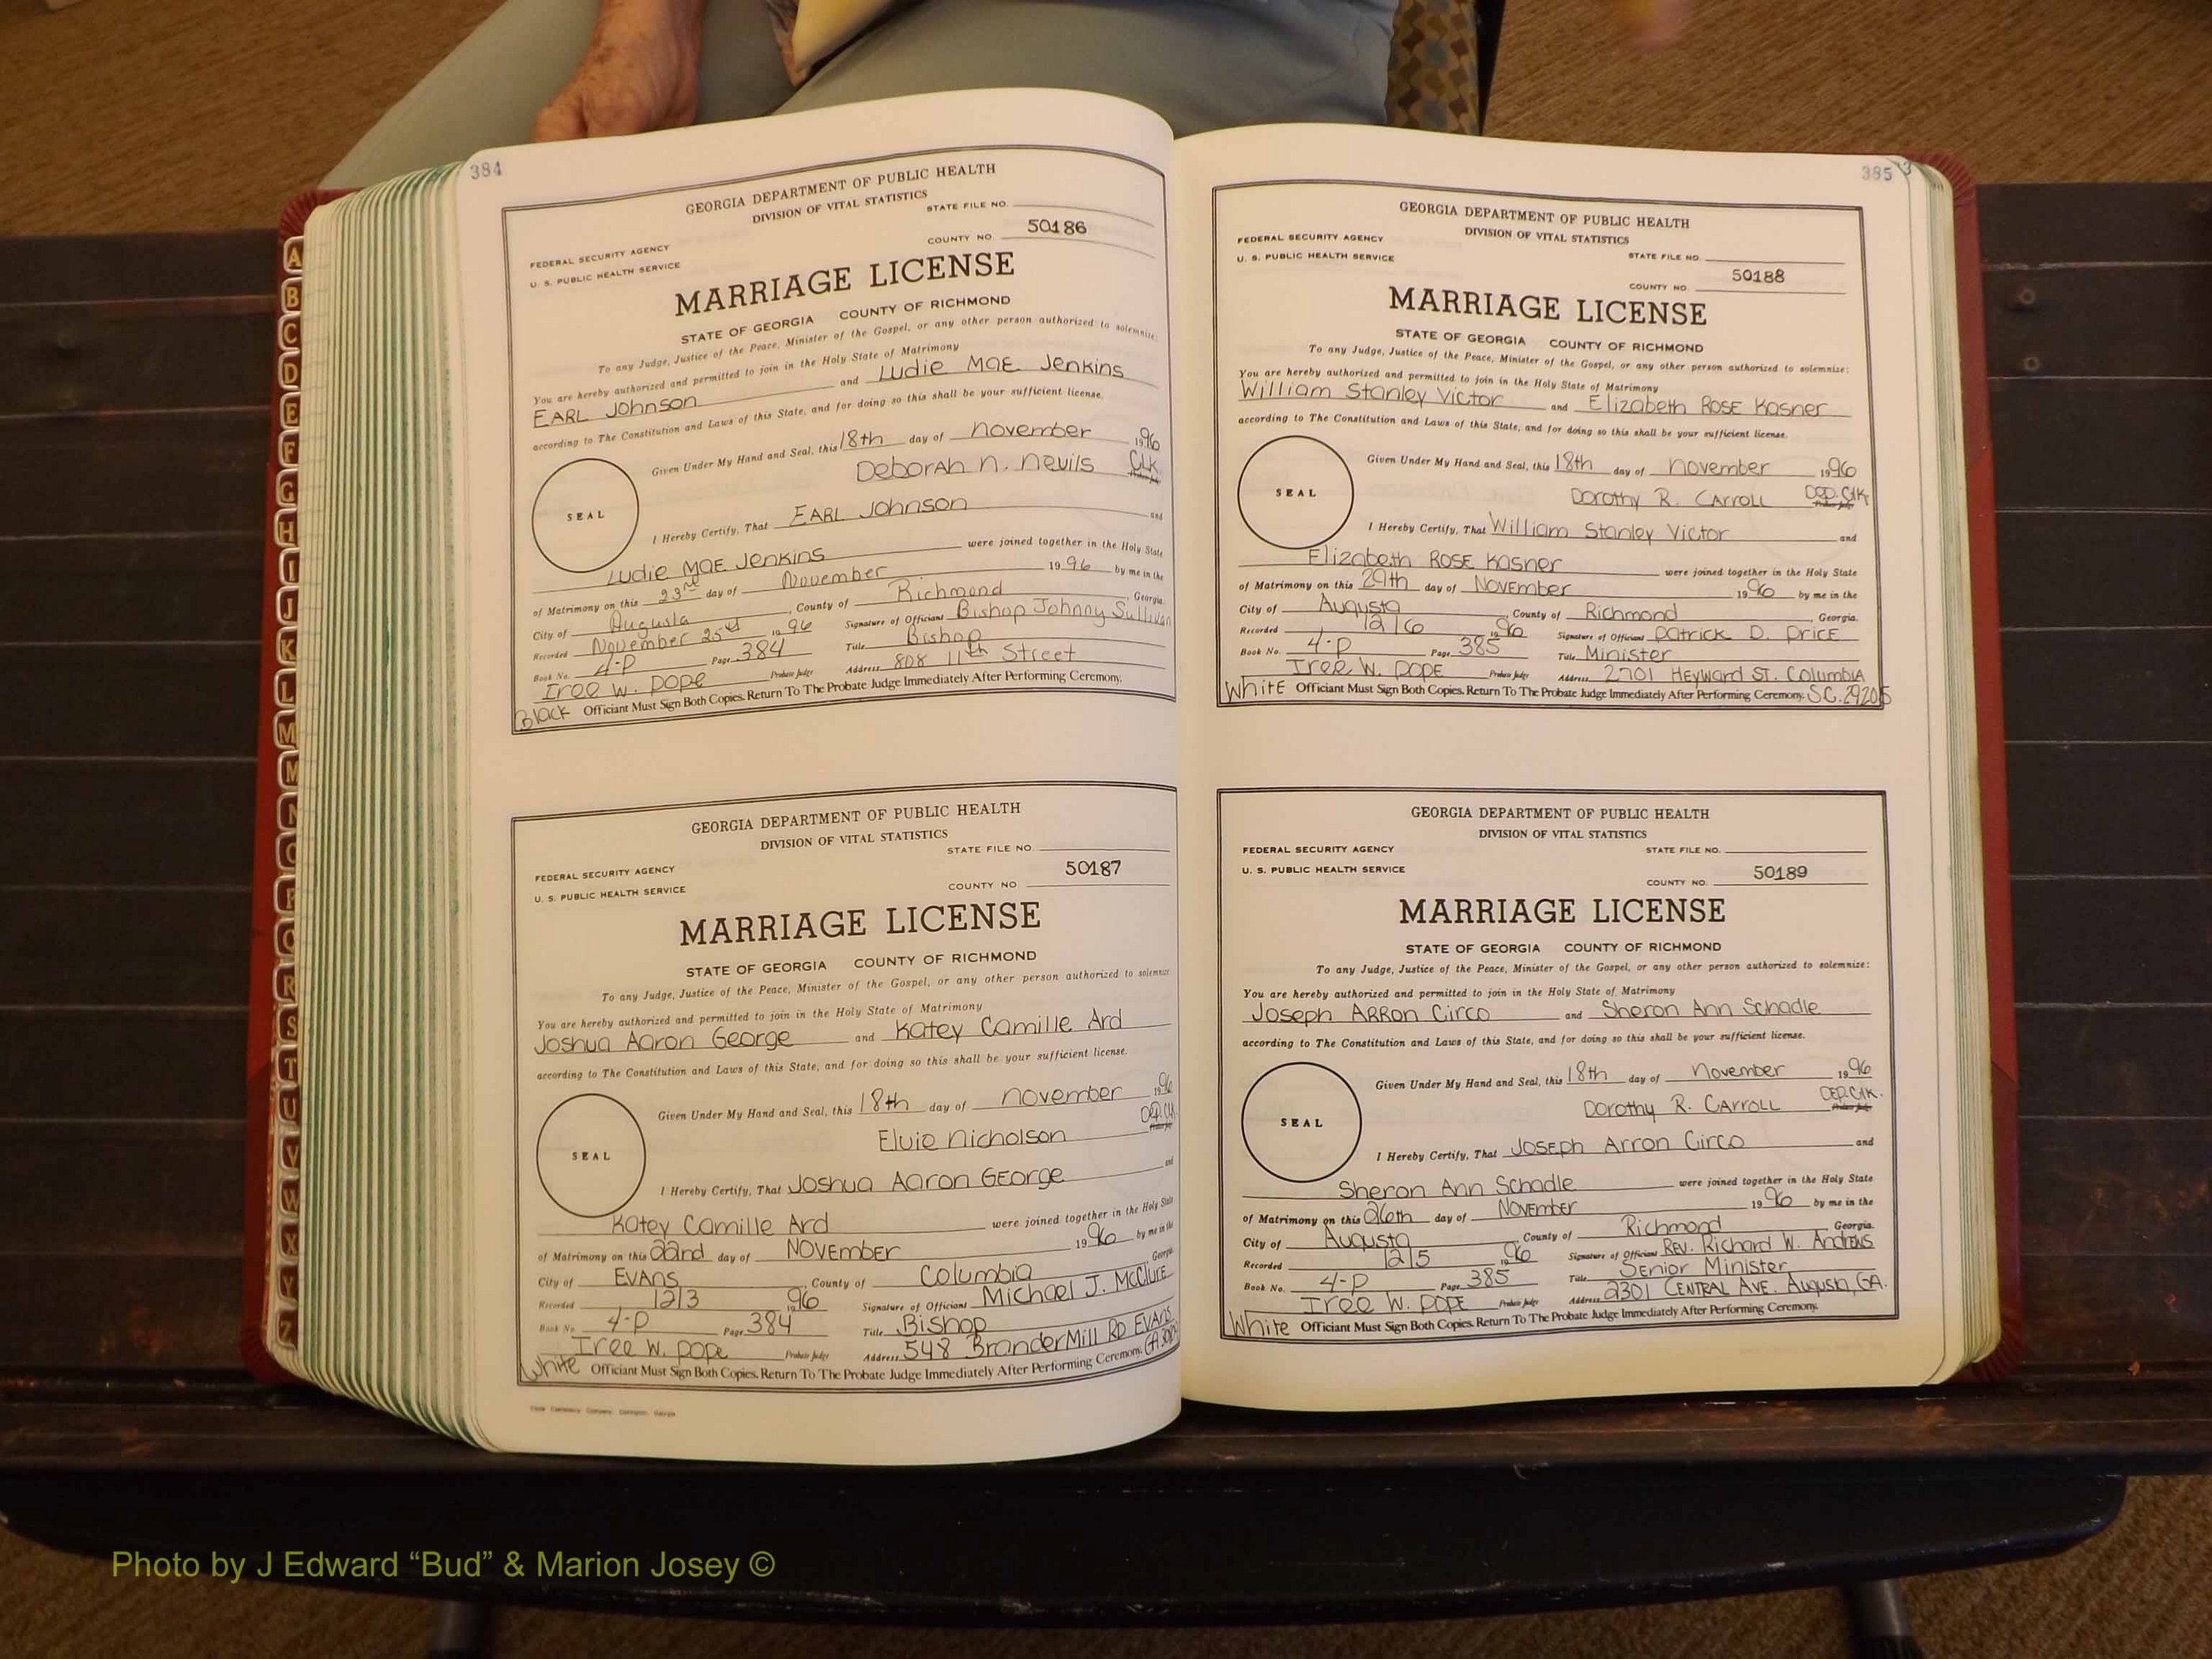 384
GEORGIA DEPARTMENT OF PUBLIC HEALTH
DIVISION OF VITAL STATISTICS
STATE FILE NO.
FEDERAL SECURITY AGENCY
COUNTY NO. 50186
U. S. PUBLIC HEALTH SERVICE
MARRIAGE LICENSE
STATE OF GEORGIA COUNTY OF RICHMOND
To any Judge, Justice of the Peace, Minister of the Gospel, or any other person authorized to solemnize:
You are hereby authorized and permitted to join in the Holy State of Matrimony
EARL Johnson and Ludie MAE Jenkins
according to The Constitution and Laws of this State, and for doing so this shall be your sufficient license.
Given Under My Hand and Seal, this 18th day of november 1996
Deborah n. nevils CLK.
SEAL
I Hereby Certify, That EARL Johnson and
Ludie MAE Jenkins were joined together in the Holy State
of Matrimony on this 23rd day of November 1996 by me in the
City of Augusta, County of Richmond, Georgia.
Recorded November 25th 1996 Signature of Officiant Bishop Johnny Sullivan
Book No. 4-P Page 384 Title Bishop
Iree W. Pope Probate Judge Address 808 11th Street
Black Officiant Must Sign Both Copies. Return To The Probate Judge Immediately After Performing Ceremony.
GEORGIA DEPARTMENT OF PUBLIC HEALTH
DIVISION OF VITAL STATISTICS
STATE FILE NO.
FEDERAL SECURITY AGENCY
COUNTY NO 50187
U. S. PUBLIC HEALTH SERVICE
MARRIAGE LICENSE
STATE OF GEORGIA COUNTY OF RICHMOND
To any Judge, Justice of the Peace, Minister of the Gospel, or any other person authorized to solemnize
You are hereby authorized and permitted to join in the Holy State of Matrimony
Joshua Aaron George and Katey Camille Ard
according to The Constitution and Laws of this State, and for doing so this shall be your sufficient license.
Given Under My Hand and Seal, this 18th day of november 1996
Elvie Nicholson DEP. Clk
SEAL
I Hereby Certify, That Joshua Aaron George and
Katey Camille Ard were joined together in the Holy State
of Matrimony on this 22nd day of NOVEMBER 1996 by me in the
City of EVANS, County of Columbia Georgia
Recorded 12/3 1996 Signature of Officiant Michael J. McClure
Book No 4-P Page 384 Title Bishop
Iree W. Pope Probate Judge Address 548 BranderMill RD EVANS
White Officiant Must Sign Both Copies. Return To The Probate Judge Immediately After Performing Ceremony. GA
385
GEORGIA DEPARTMENT OF PUBLIC HEALTH
DIVISION OF VITAL STATISTICS
FEDERAL SECURITY AGENCY
STATE FILE NO.
U. S. PUBLIC HEALTH SERVICE
COUNTY NO. 50188
MARRIAGE LICENSE
STATE OF GEORGIA COUNTY OF RICHMOND
To any Judge, Justice of the Peace, Minister of the Gospel, or any other person authorized to solemnize:
You are hereby authorized and permitted to join in the Holy State of Matrimony
William Stanley Victor and Elizabeth ROSE Kasner
according to The Constitution and Laws of this State, and for doing so this shall be your sufficient license.
Given Under My Hand and Seal, this 18th day of november 1996
Dorothy R. CARROLL DEP. Clk
SEAL
I Hereby Certify, That William Stanley Victor and
Elizabeth ROSE Kasner were joined together in the Holy State
of Matrimony on this 29th day of NOVEMBER 1996 by me in the
City of Augusta, County of Richmond, Georgia.
Recorded 12/6 1996 Signature of Officiant Patrick D. PRICE
Book No. 4-P Page 385 Title Minister
Iree W. POPE Probate Judge Address 2701 HEYWARD ST. Columbia
White Officiant Must Sign Both Copies. Return To The Probate Judge Immediately After Performing Ceremony. S.C. 29205
GEORGIA DEPARTMENT OF PUBLIC HEALTH
DIVISION OF VITAL STATISTICS
FEDERAL SECURITY AGENCY
STATE FILE NO.
U. S. PUBLIC HEALTH SERVICE
COUNTY NO. 50189
MARRIAGE LICENSE
STATE OF GEORGIA COUNTY OF RICHMOND
To any Judge, Justice of the Peace, Minister of the Gospel, or any other person authorized to solemnize:
You are hereby authorized and permitted to join in the Holy State of Matrimony
Joseph ARRON Circo and Sheron Ann Schadle
according to The Constitution and Laws of this State, and for doing so this shall be your sufficient license.
Given Under My Hand and Seal, this 18th day of november 1996
Dorothy R. CARROLL DEP. Clk.
SEAL
I Hereby Certify, That Joseph Arron Circo and
Sheron Ann Schadle were joined together in the Holy State
of Matrimony on this 26th day of NOVEMBER 1996 by me in the
City of Augusta, County of Richmond, Georgia.
Recorded 12/5 1996 Signature of Officiant REV. Richard W. Andrews
Book No. 4-P Page 385 Title Senior Minister
Iree W. POPE Probate Judge Address 2301 CENTRAL AVE. Augusta, GA.
White Officiant Must Sign Both Copies. Return To The Probate Judge Immediately After Performing Ceremony.
A
B
C
D
E
F
G
H
I
J
K
L
M
Mc
N
O
P
Q
R
S
T
U
V
W
X
Y
Z
Photo by J Edward “Bud” & Marion Josey ©